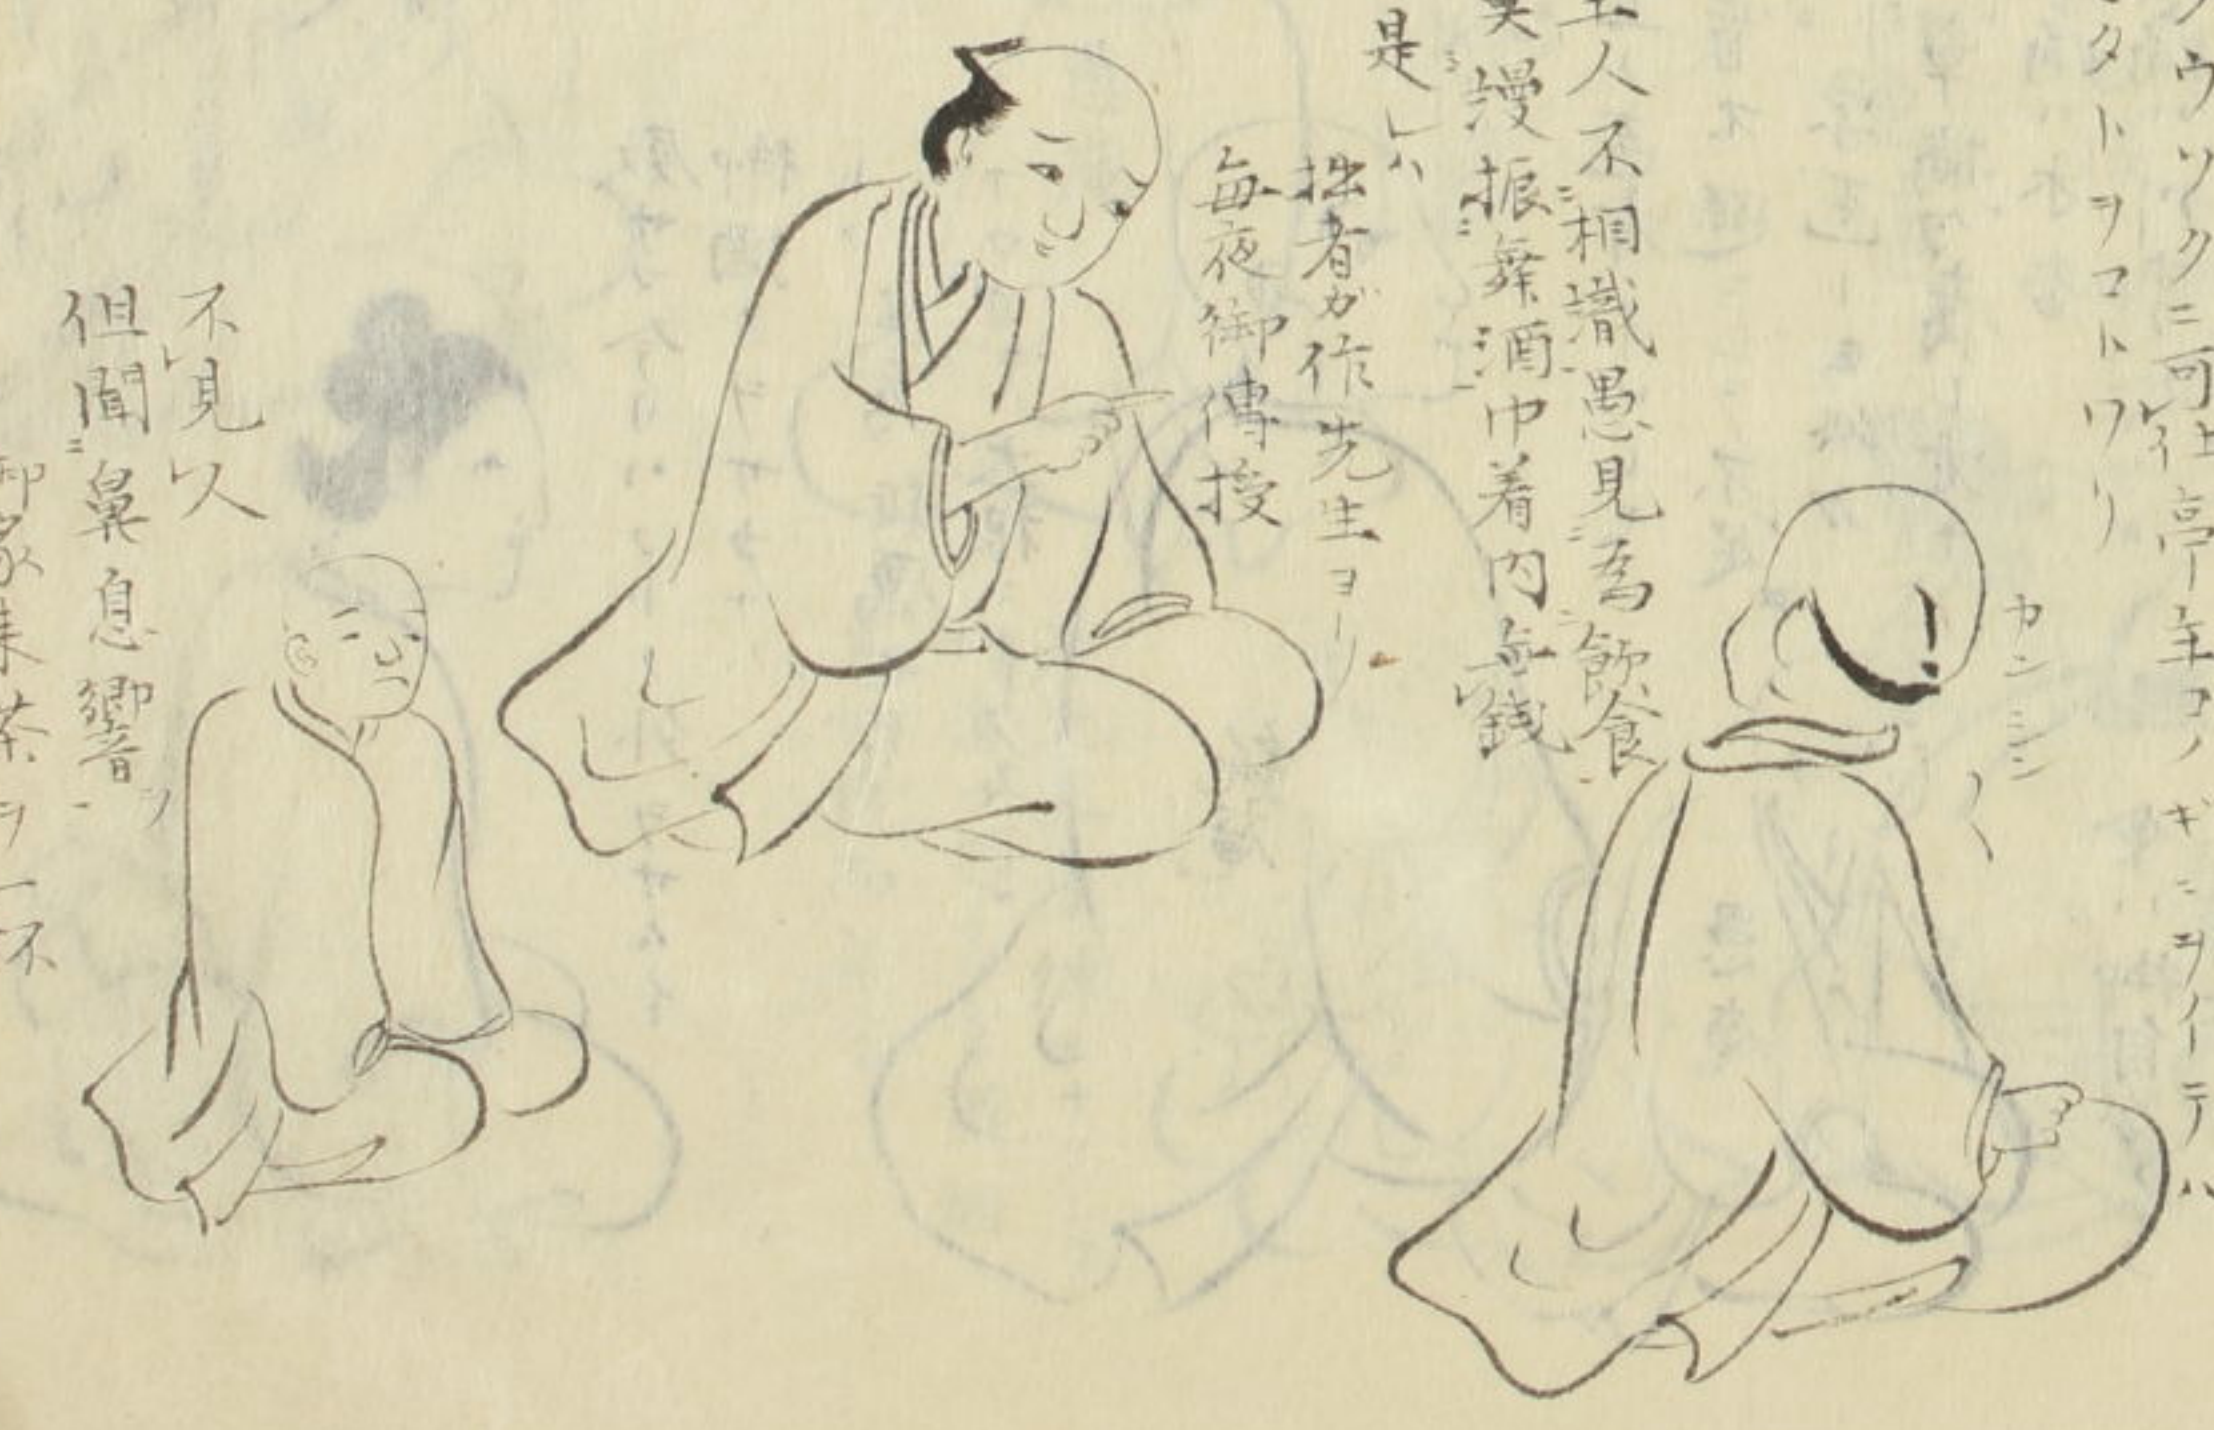 ウソクニ可レ仕亭主コノギニヲイーテハ
タトヲコトワリ
カンシン〱
主人不相識愚見為飲食
莫謾振舞酒巾着内無レ銭
是レハ
拙者が作先生ヨーリ
毎夜御傳授
不レ見レ人
但聞鼻息響ヲ
茶ヲ一不